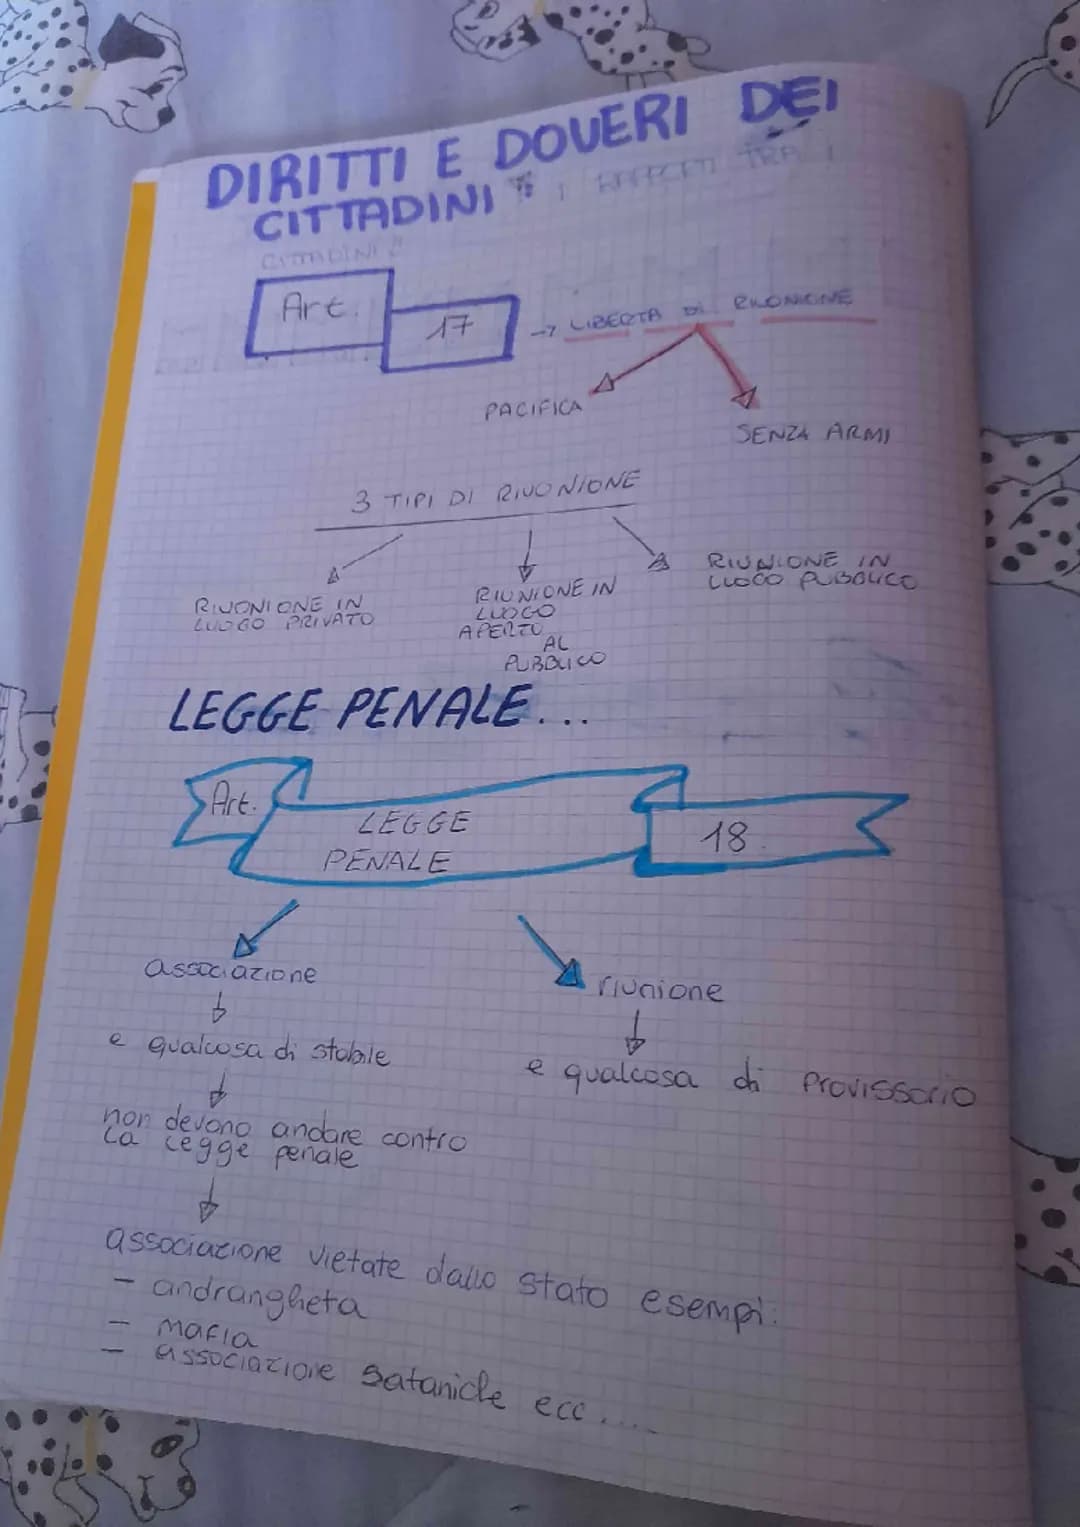 DIRITTI E DOVERI DEI
CITTADINI
Art. 17 → LIBERTA DI RIUNIONE
PACIFICA
SENZA ARMI
3 TIPI DI RIUONIONE
RIUONIONE IN
LUOGO PRIVATO
RIUNIONE IN
LUOGO
APERTO
AL
PUBBLICO
RIUNIONE IN
LUOGO PUBBLICO
LEGGE PENALE...
Art. LEGGE
PENALE
18.
associazione
e qualcosa di stabile
non devono andare contro
la legge penale
riunione
e qualcosa di provissorio
associazione vietate dallo stato esempi:
- andrangheta
- mafia
- associazione sataniche ecc....